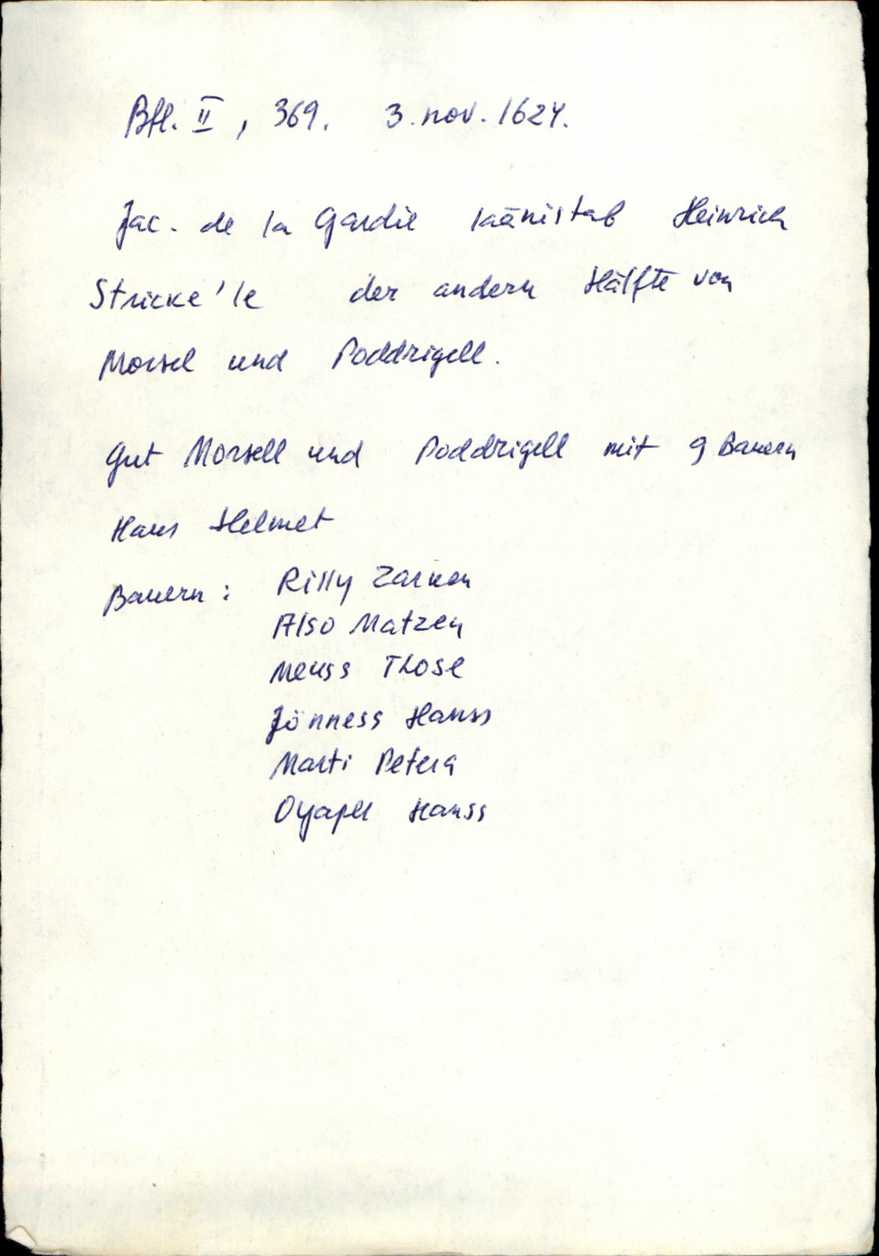 Bfl. II, 369. 3. nov. 1624.
Jac. de la Gardie läänistab Heinrich
Stricke'le der andern Hälfte von
Morsel und Poddrigell.
Gut Morsell und Poddrigell mit 9 Bauern
Hans Helmet
Bauern: Rilly Zarnen
Also Matzen
Meuss Those
Jönness Hanss
Marti Petera
Oyapeh Hanss